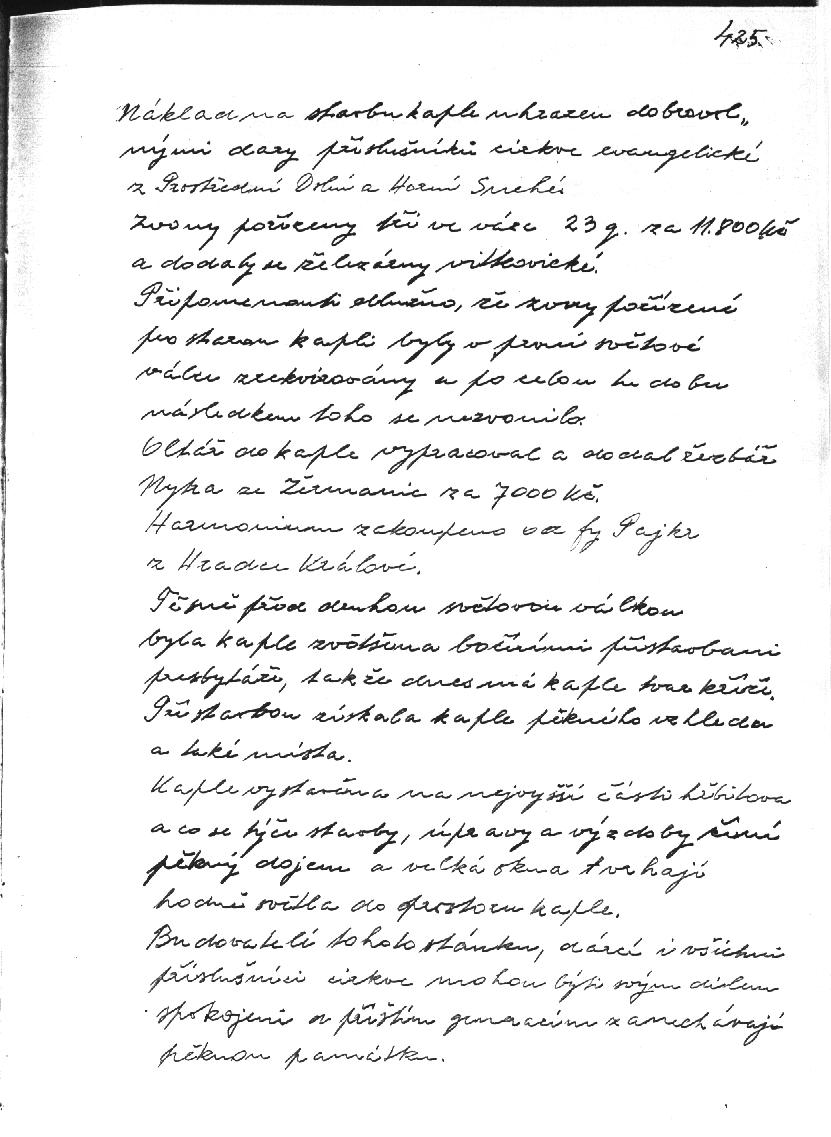 425.
Náklad na stavbu kaple uhrazen dobrovol„
nými dary příslušníků církve evangelické
z Prostřední Dolní a Horní Suché.
Zvony pořízeny tři ve váze 23 q. za 11.800 Kč
a dodaly se železárny vítkovické.
Připomenouti dlužno, že zvony pořízené
pro starou kapli byly v první světové
válce zrekvírovány a po celou tu dobu
následkem toho se nezvonilo.
Oltář do kaple vypracoval a dodal řezbář
Nyka ze Žermanic za 7000 Kč.
Harmonium zakoupeno od fy Pajkr
z Hradce Králové.
Těsně před druhou světovou válkou
byla kaple zvětšena bočními přístavbami
presbytáře, takže dnes má kaple tvar kříže.
Přístavbou získala kaple pěkného vzhledu
a také místa.
Kaple vystavěna na nejvyšší části hřbitova
a co se týče stavby, úpravy a výzdoby činí
pěkný dojem a velká okna vrhají
hodně světla do prostoru kaple.
Budovatelé tohoto stánku, dárci i všichni
příslušníci církve mohou býti svým dílem
spokojeni a příštím generacím zanechávají
pěknou památku.